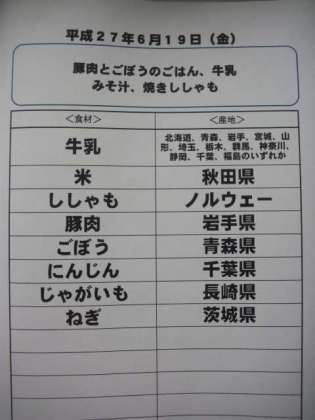 平成２７年６月１９日（金）
豚肉とごぼうのごはん、牛乳
みそ汁、焼きししゃも
＜食材＞ ＜産地＞
牛乳 北海道、青森、岩手、宮城、山
形、埼玉、栃木、群馬、神奈川、
静岡、千葉、福島のいずれか
米 秋田県
ししゃも ノルウェー
豚肉 岩手県
ごぼう 青森県
にんじん 千葉県
じゃがいも 長崎県
ねぎ 茨城県